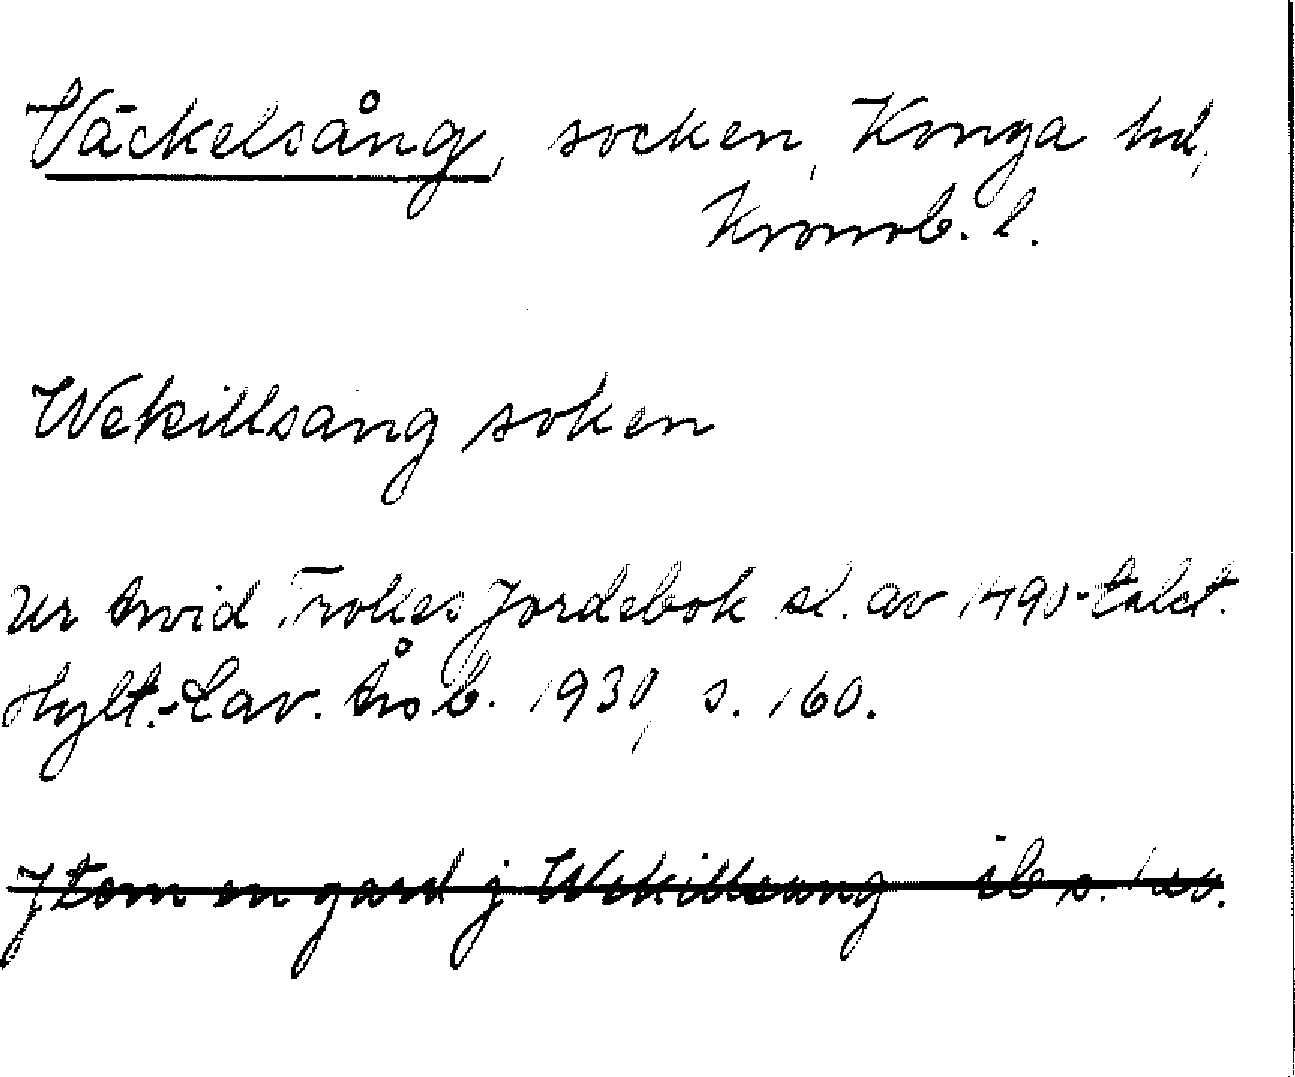 Väckelsång, socken, Konga hd,
Kronob. l.
Wekillsang soken
Ur Arvid Trolles Jordebok sl. av 1490-talet.
Hylt.-Cav. Årsb. 1930, s. 160.
Jtem en gard j Wekillsang ib s. 160.